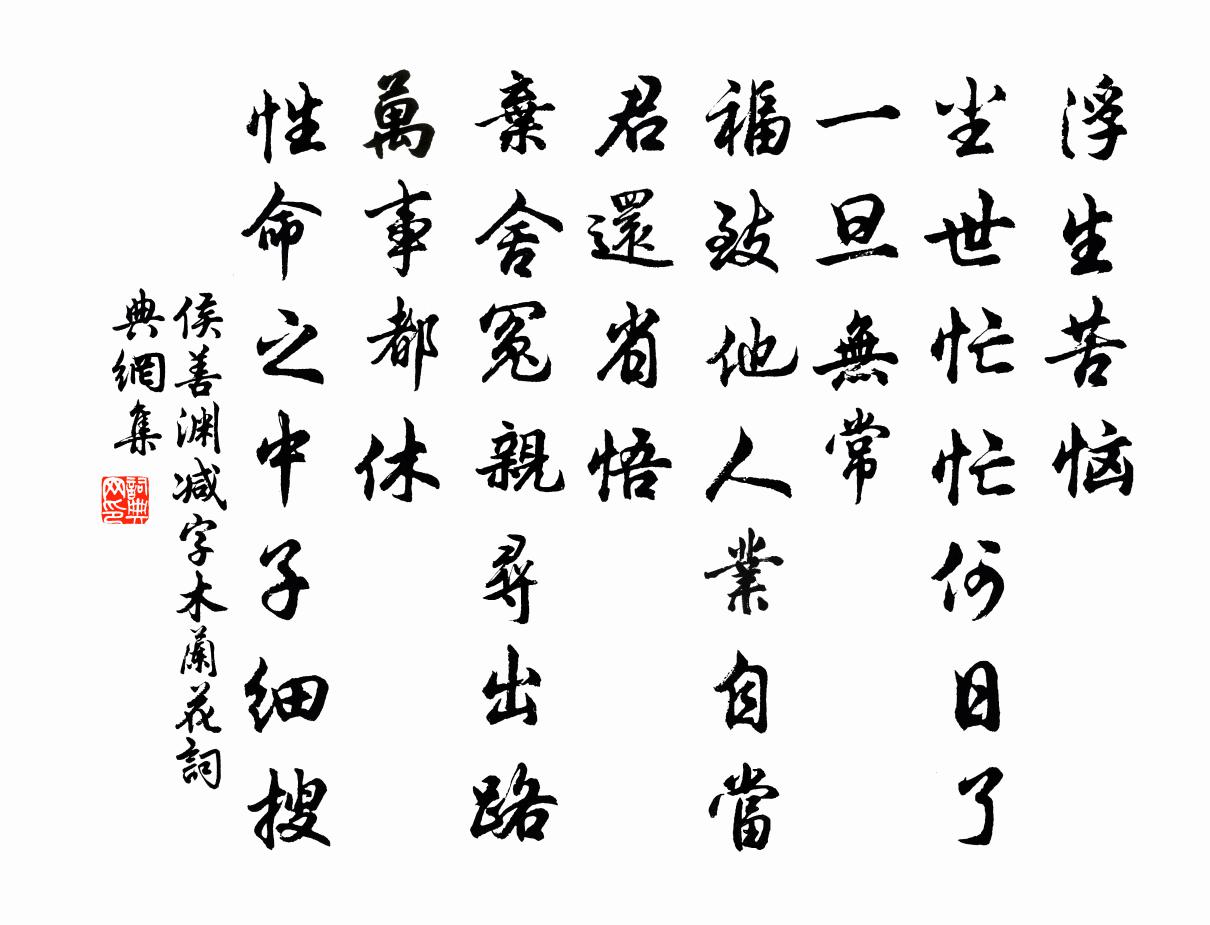 浮生苦恼
尘世忙忙何日了
一旦無常
福致他人業自當
君還省悟
棄舍冤親尋出路
萬事都休
性命之中子細搜
侯善渊减字木蘭花詞
典網集
詞典
网印